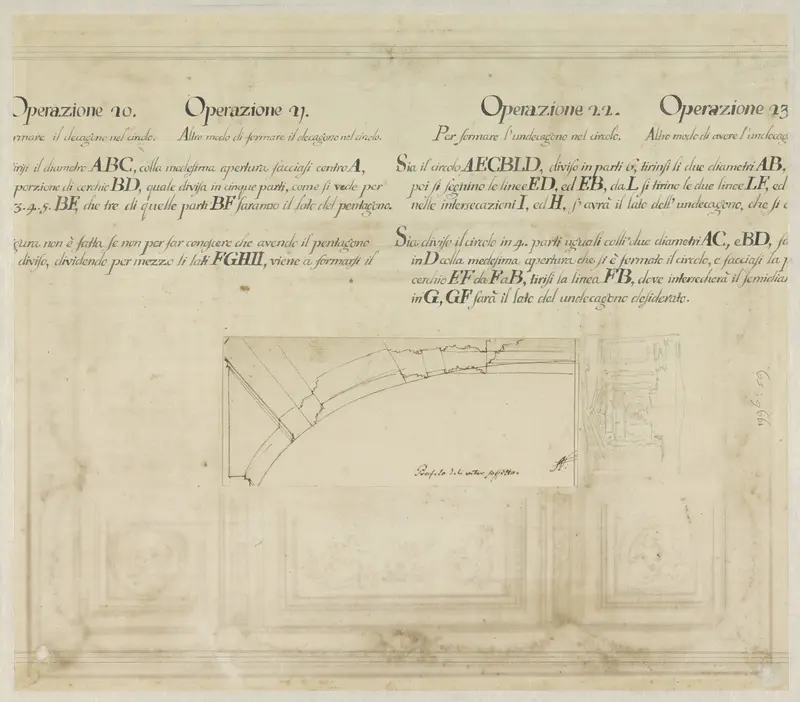 Operazione 20.
Operazione 21.
Operazione 22.
Operazione 23
rmare il decagono nel circolo.
Altro modo di formare il decagono nel circolo.
Per formare l'undecagono nel circolo.
Altro modo di avere l'undecag
il diametro ABC, colla medesima apertura facciasi centro A,
porzione di cerchio BD, quale divisa in cinque parti, come si vede per
3. 4. 5. BF, che tre di quelle parti BF saranno il lato del pentagono.
igura non è fatta se non per far conoscere che avendo il pentagono
diviso, dividendo per mezzo li lati FGHII, viene a formarsi il
Sia il circolo AECBLD, diviso in parti 6, tirinsi li due diametri AB,
poi si segnino le linee ED, ed EB, da L si tirino le due linee LF, ed
nelle intersecazioni I, ed H, s'avrà il lato dell'undecagono, che si
Sia diviso il circolo in 4. parti uguali colli due diametri AC, e BD, fa
in D colla medesima apertura che si è formato il circolo, e facciasi la p
cerchio EF da F a B, tirisi la linea FB, dove intersecherà il semidia
in G, GF sarà il lato del undecagono desiderato.